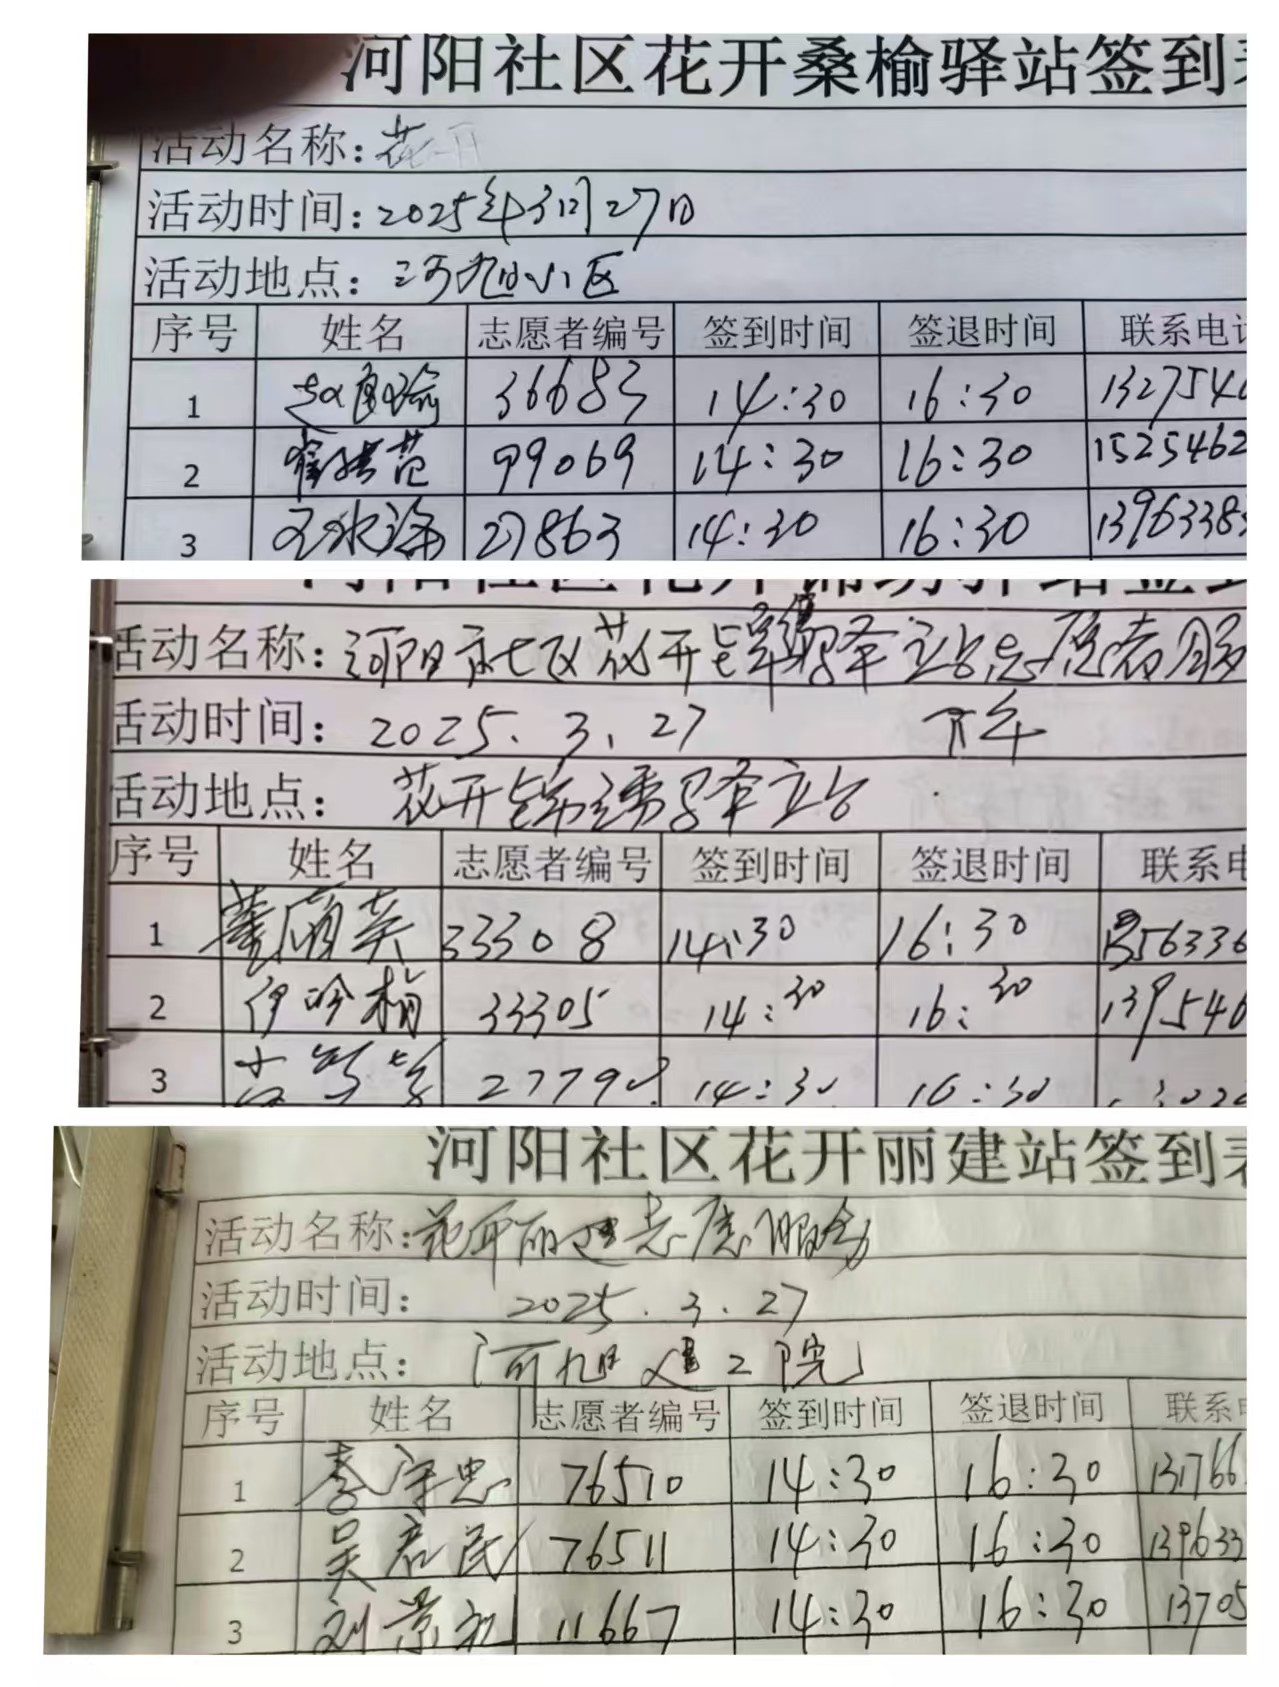 河阳社区花开桑榆驿站签到表
活动名称：花开
活动时间：2025年3月27日
活动地点：河阳小区
序号 姓名 志愿者编号 签到时间 签退时间 联系电话
1 36683 14:30 16:30 1327546
2 99069 14:30 16:30 1525462
3 王冰涤 27863 14:30 16:30 1396338
活动名称：河阳社区花开锦绣驿站志愿者服
活动时间：2025.3.27 下午
活动地点：花开锦绣驿站
序号 姓名 志愿者编号 签到时间 签退时间 联系电
1 董丽英 33308 14:30 16:30 1356336
2 伊吟梅 33305 14:30 16:30 139546
3 2779 14:30 16:30
河阳社区花开丽建站签到表
活动名称：花开丽建志愿服务
活动时间：2025.3.27
活动地点：河阳建工院
序号 姓名 志愿者编号 签到时间 签退时间 联系
1 李守忠 76510 14:30 16:30 131766
2 吴君民 76511 14:30 16:30 139633
3 刘景 11667 14:30 16:30 13705